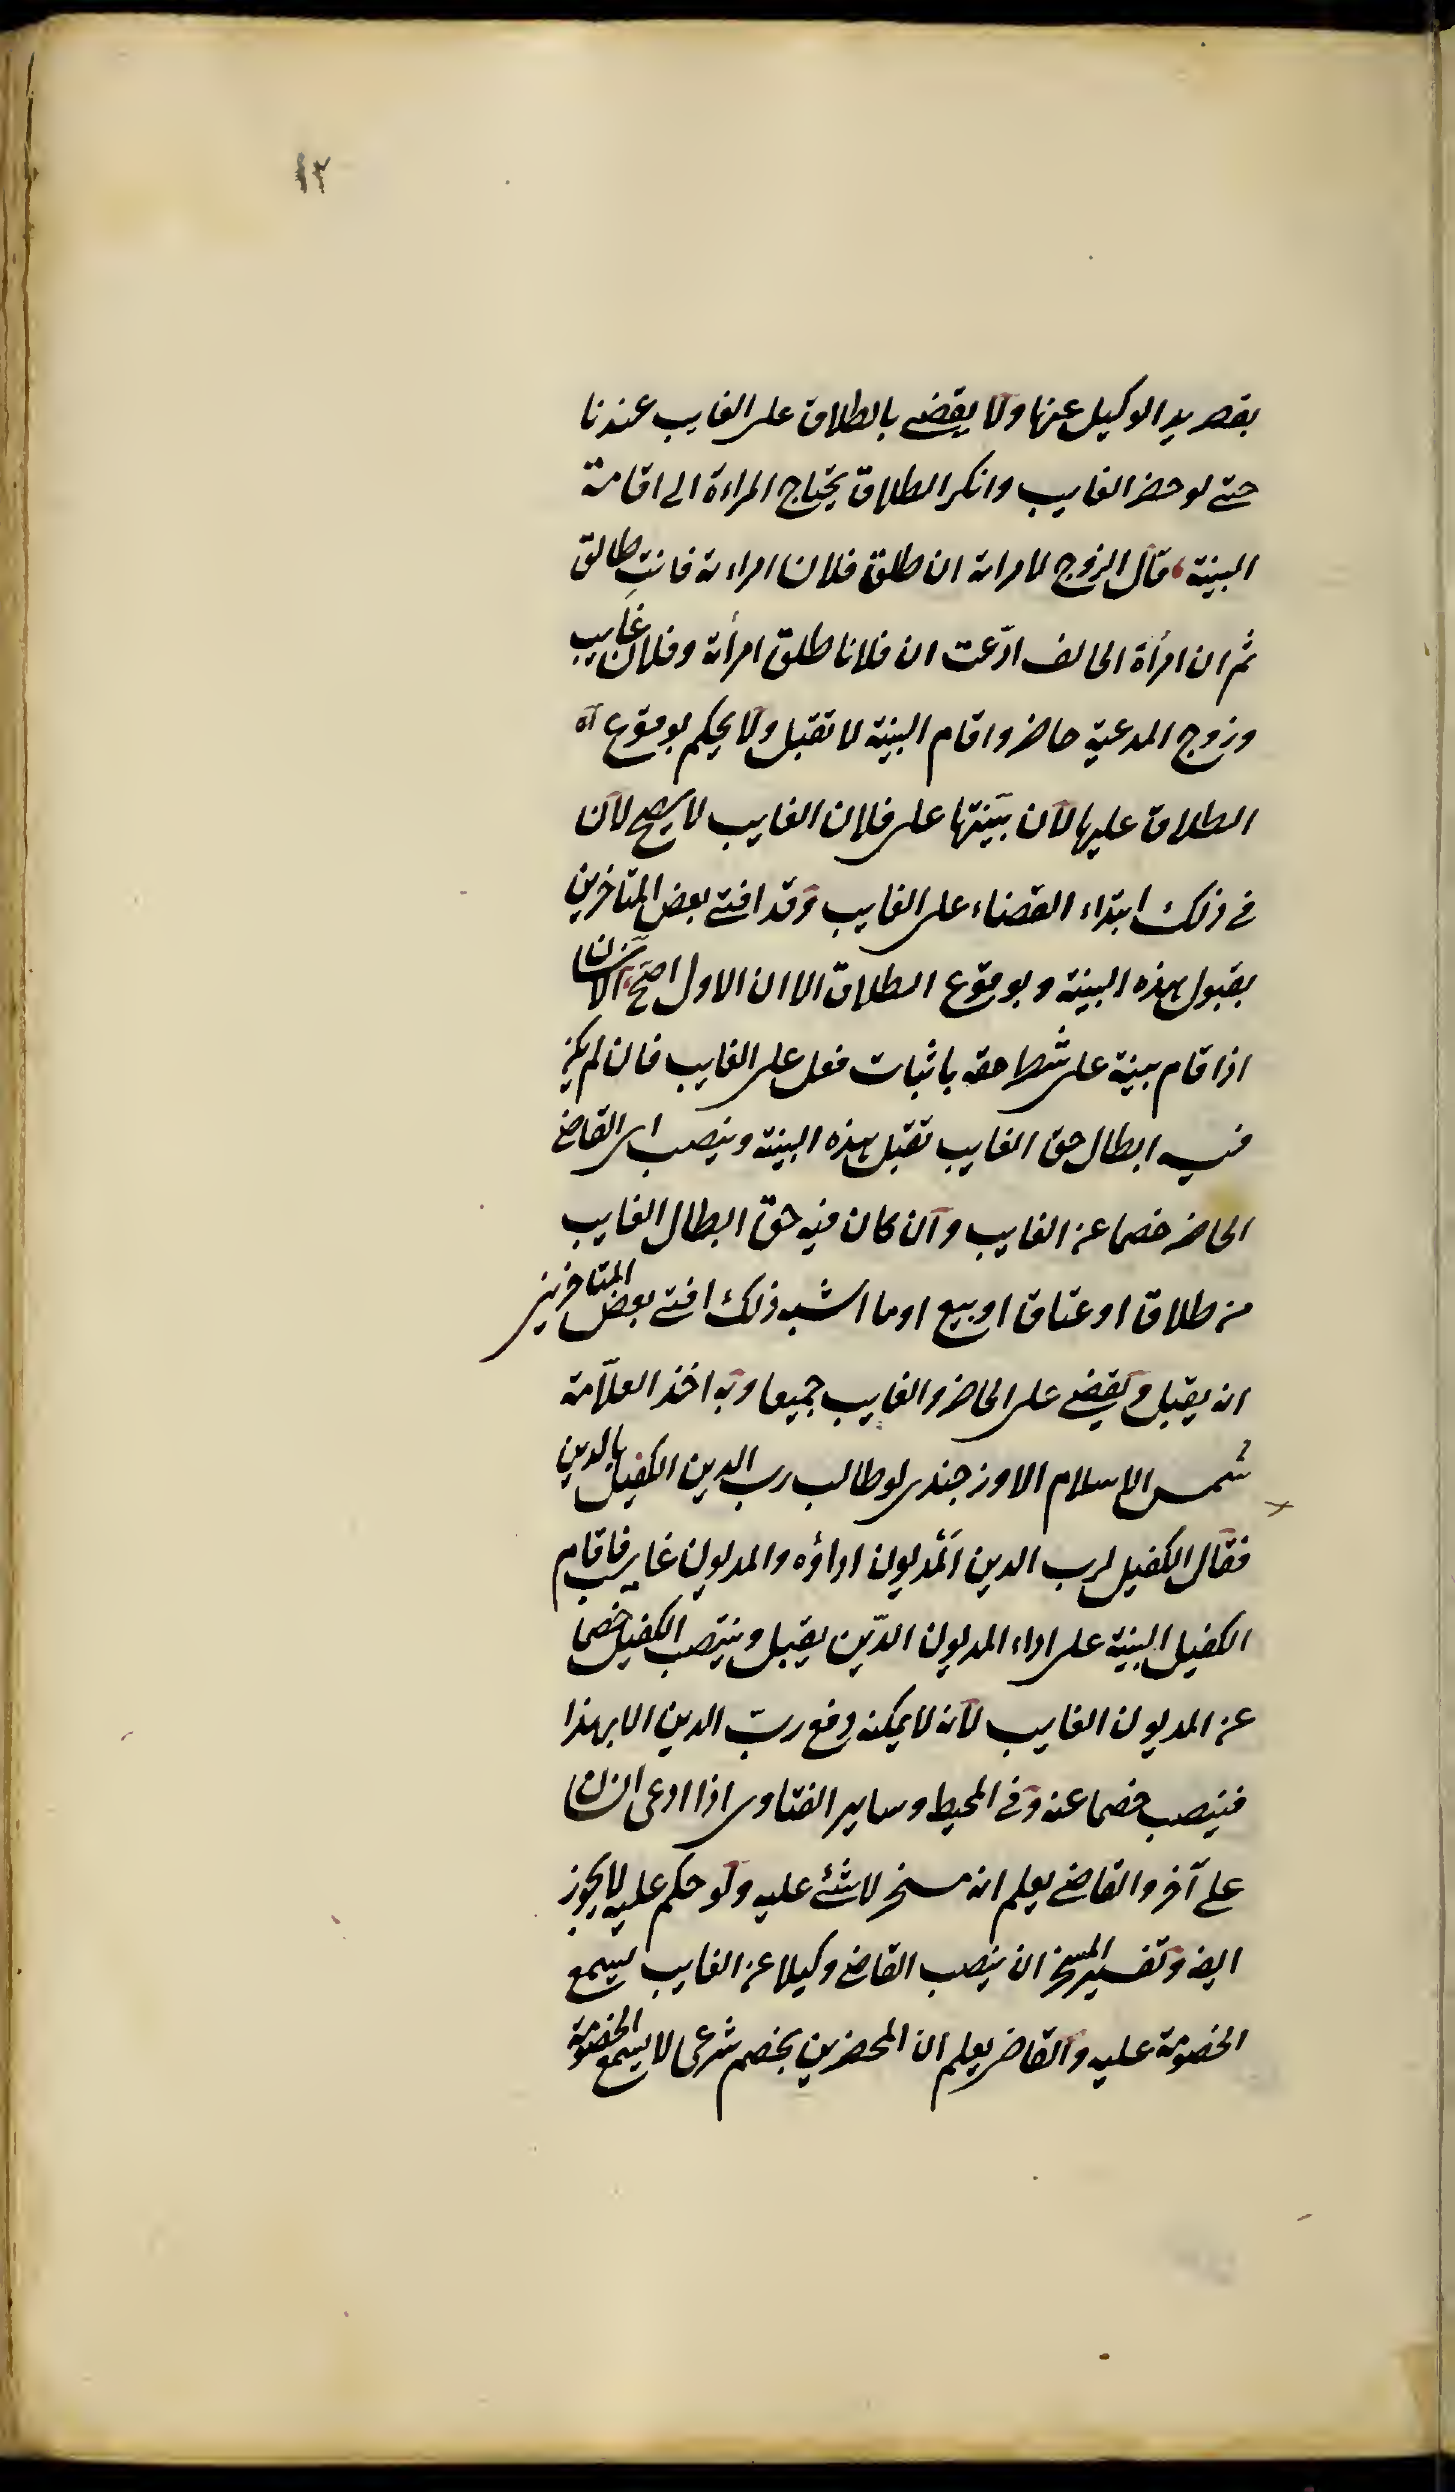 ١٢
بقصر يد الوكيل عنها ولا يقضى بالطلاق على الغايب عندنا
حتى لو حضر الغايب وانكر الطلاق يحتاج المراءة الى اقامة
البينة قال الزوج لامراته ان طلق فلان امراءته فانتِ طالق
ثم ان امرأة الحالف ادّعت ان فلانا طلق امرأته وفلان غايب
وزوج المدعية حاضر واقام البينة لا تقبل ولا يحكم بوقوع آه
الطلاق عليها لأن بيّنتها على فلان الغايب لا يصح لأن
فى ذلك ابتداء القضاء على الغايب وقد افتى بعض المتاخرين
بقبول هذه البينة وبوقوع الطلاق الا ان الاول اصحّ الانسان
اذا قام بينة على شرط حقه باثبات فعل على الغايب فان لم يكن
فيه ابطال حق الغايب تقبل هذه البينة وينصب اى القاضى
الحاضر خصما عن الغايب وان كان فيه حق ابطال الغايب
من طلاق او عتاق او بيع او ما اشبه ذلك افتى بعض المتاخرين
انه يقبل ويقضى على الحاضر والغايب جميعا وبه اخذ العلّامة
شمس الاسلام الاوزجندى لو طالب رب الدين الكفيل بالدين
فقال الكفيل لرب الدين المديون اداؤه والمديون غايب فاقام
الكفيل البينة على اداء المديون الدّين يقبل وينتصب الكفيل خصما
عن المديون الغايب لأنه لا يمكنه دفع ربّ الدين الا بهذا
فينصب خصما عنه وفى المحيط وساير الفتاوى اذا ادعى انسان
على آخر والقاضى يعلم انه مسخر لا شئ عليه ولو حكم عليه لا يجوز
ايضا وتفسير المسخر ان ينصب القاضى وكيلا عن الغايب ليسمع
الخصومة عليه والقاضى يعلم ان المحضر ين بخصم شرعى لا يسمع الخصومة